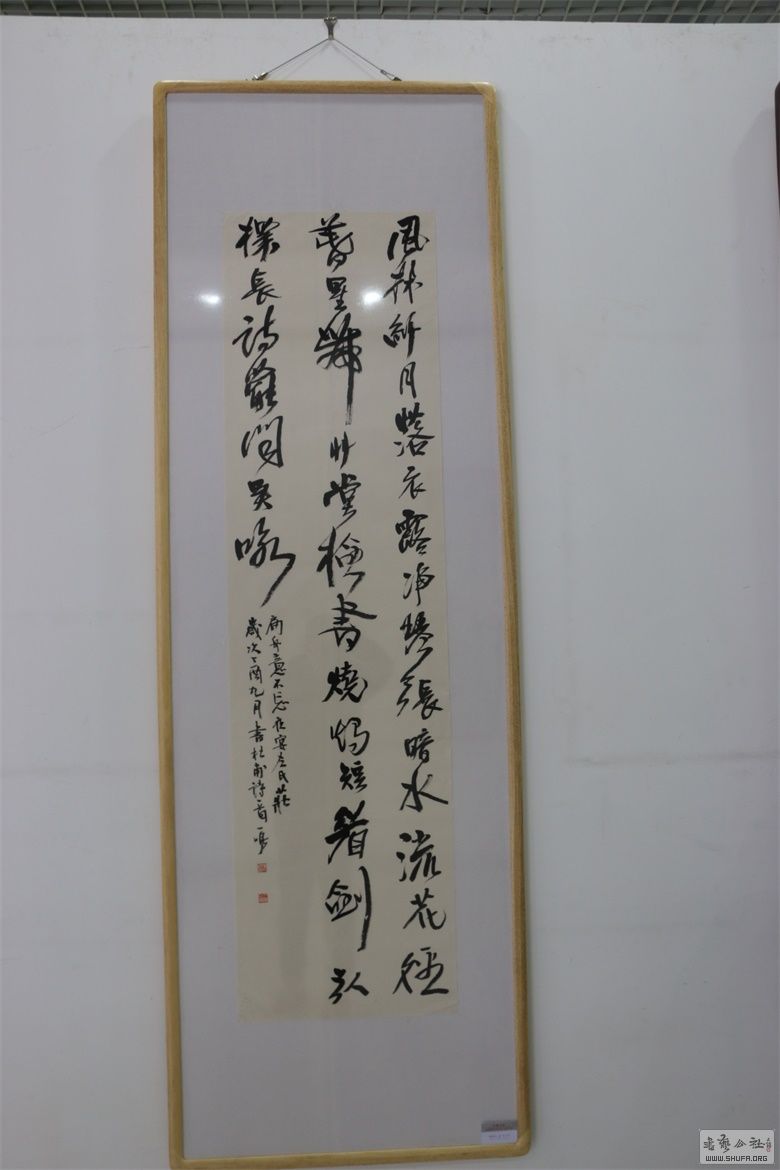 風林纖月落衣露淨琴張暗水流花徑
春星帶艸堂檢書燒燭短看劍引
杯長詩罷聞吳詠
扁舟意不忘 夜宴左氏莊
歲次丁酉九月書杜甫詩首
书艺公社
WWW.SHUFA.ORG